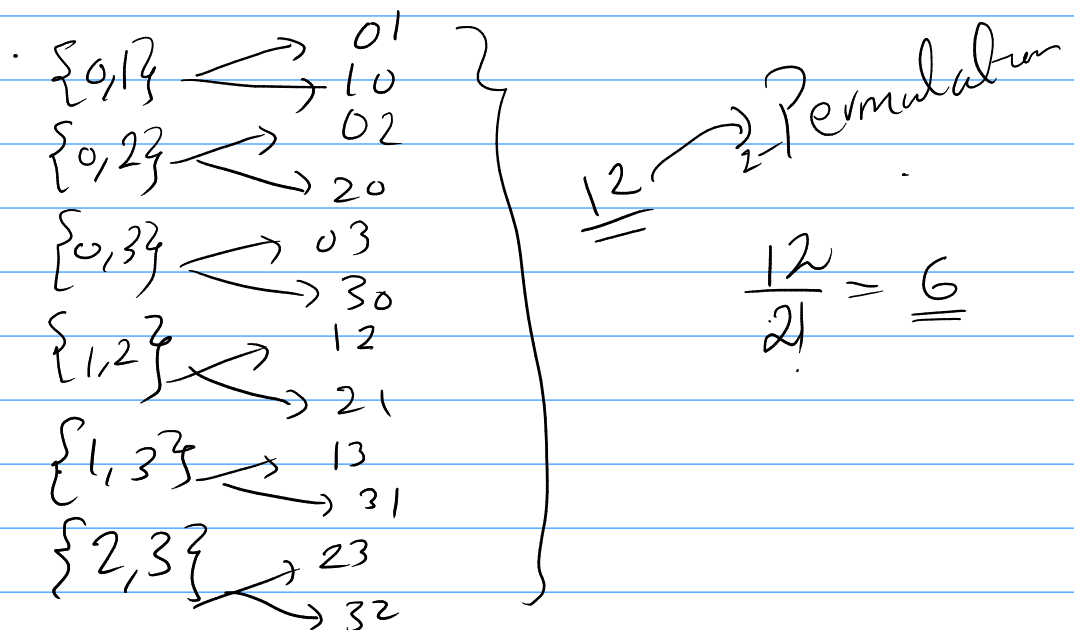 {0,1} 01
10
{0,2} 02
20
{0,3} 03
30
{1,2} 12
21
{1,3} 13
31
{2,3} 23
32
12 2-Permutation
12/2! = 6